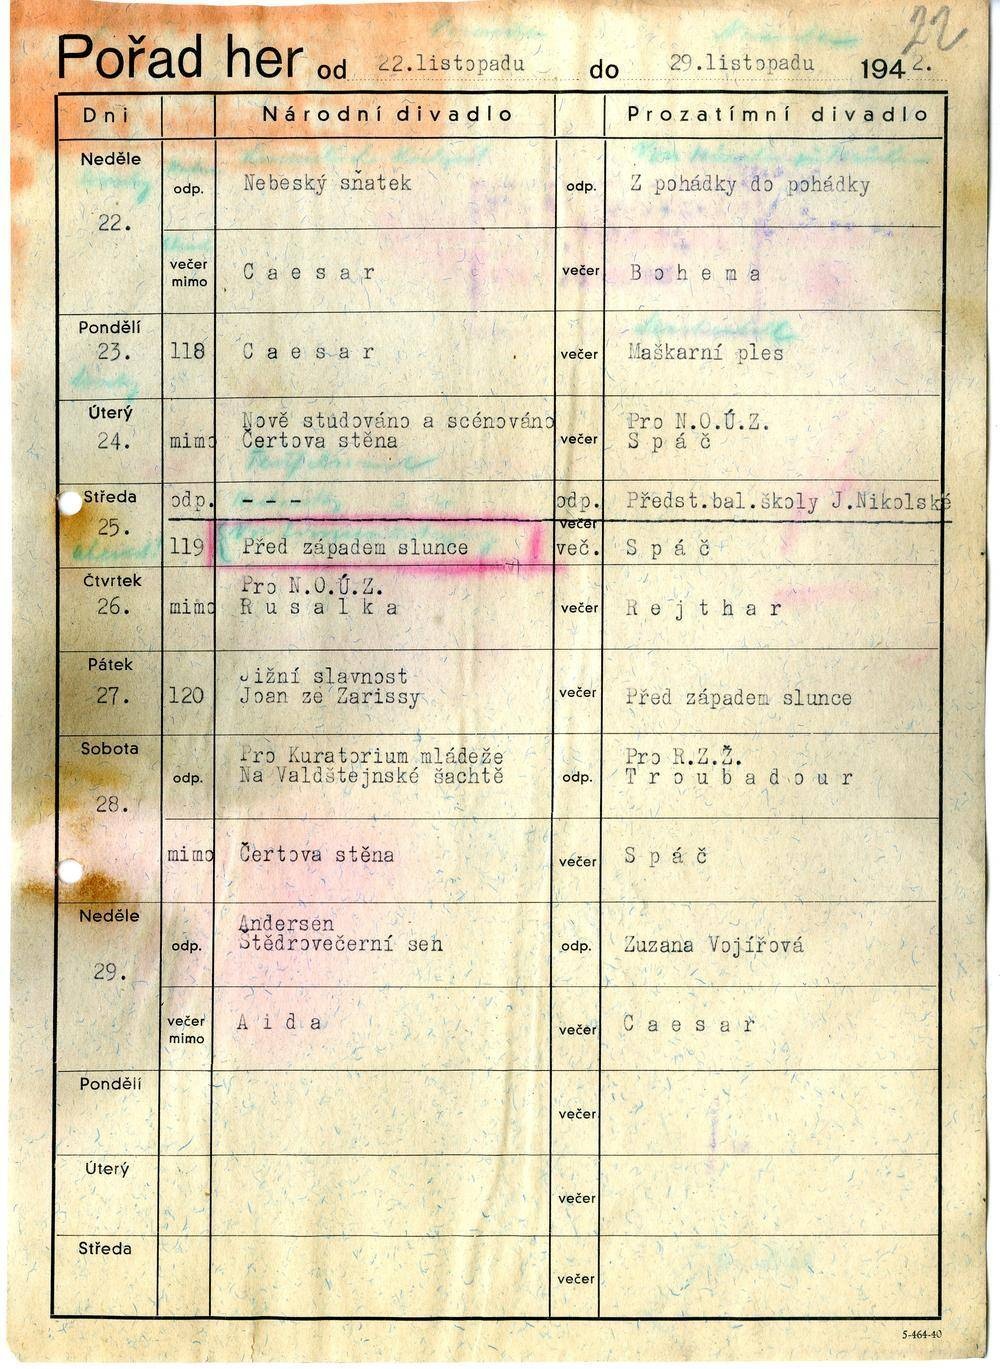 22
Pořad her od 22.listopadu do 29.listopadu 1942.
Dni Národní divadlo Prozatímní divadlo
Neděle
odp. Nebeský sňatek odp. Z pohádky do pohádky
22.
večer mimo C a e s a r večer B o h e m a
Pondělí
23. 118 C a e s a r večer Maškarní ples
Úterý Nově studováno a scénováno Pro N.O.Ú.Z.
24. mimo Čertova stěna večer S p á č
Středa odp. - - - odp. Předst.bal.školy J.Nikolské
25. večer
119 Před západem slunce več. S p á č
Čtvrtek Pro N.O.Ú.Z.
26. mimo R u s a l k a večer R e j t h a r
Pátek Jižní slavnost
27. 120 Joan ze Zarissy večer Před západem slunce
Sobota Pro Kuratorium mládeže Pro R.Z.Ž.
odp. Na Valdštejnské šachtě odp. T r o u b a d o u r
28.
mimo Čertova stěna večer S p á č
Neděle Andersen
odp. Štědrovečerní sen odp. Zuzana Vojířová
29.
večer mimo A i d a večer C a e s a r
Pondělí
večer
Úterý
večer
Středa
večer
5-464-40